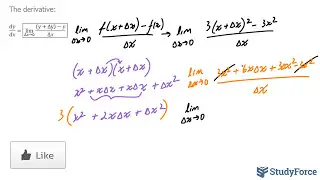 The derivative:
dy/dx = lim Δx→0 (y + Δy) − y / Δx
lim Δx→0 f(x+Δx) − f(x) / Δx → lim Δx→0 3(x+Δx)² − 3x² / Δx
(x + Δx)(x + Δx)
x² + xΔx + xΔx + Δx²
lim Δx→0 3x² + 6xΔx + 3Δx² − 3x² / Δx
3(x² + 2xΔx + Δx²)
lim Δx→0
Like
StudyForce